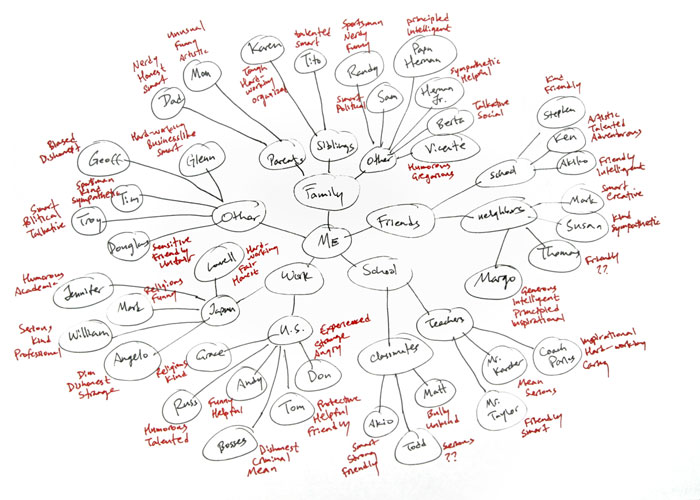 ME
Family
Parents
Mom
Unusual
Funny
Artistic
Dad
Nerdy
Honest
Smart
Siblings
Karen
Tough
Hard-
working
organized
Tito
talented
smart
Other
Randy
Sportsman
Nerdy
Funny
Sam
Smart
Political
Papa
Heman
principled
Intelligent
Heman
Jr.
Sympathetic
Helpful
Berta
Talkative
Social
Vicente
Humorous
Gregarious
Friends
school
Stephen
Kind
Friendly
Ken
Artistic
Talented
Adventurous
Akiho
Friendly
Intelligent
neighbors
Mark
Smart
Creative
Susan
Kind
Sympathetic
Thomas
Friendly
??
Margo
Generous
Intelligent
Principled
Inspirational
School
Teachers
Coach
Parks
Inspirational
Hard-working
Caring
Mr.
Mean
Serious
Mr.
Taylor
Friendly
Smart
Classmates
Matt
Bully
Unkind
Todd
Serious
??
Akio
Smart
Strong
Friendly
Work
U.S.
Don
Experienced
Strange
Angry
Tom
Protective
Helpful
Friendly
Bosses
Dishonest
Criminal
Mean
Andy
Funny
Helpful
Russ
Humorous
Talented
Grace
Religious
Kind
Japan
Lowell
Hard-
working
Fair
Honest
Jennifer
Humorous
Academic
Mark
Religious
Funny
William
Serious
Kind
Professional
Angelo
Dim
Dishonest
Strange
Other
Glenn
Hard-working
Businesslike
Smart
Geoff
Biased
Dishonest
Tim
Sportsman
Kind
Sympathetic
Troy
Smart
Political
Talkative
Douglas
Sensitive
Friendly
Unfair